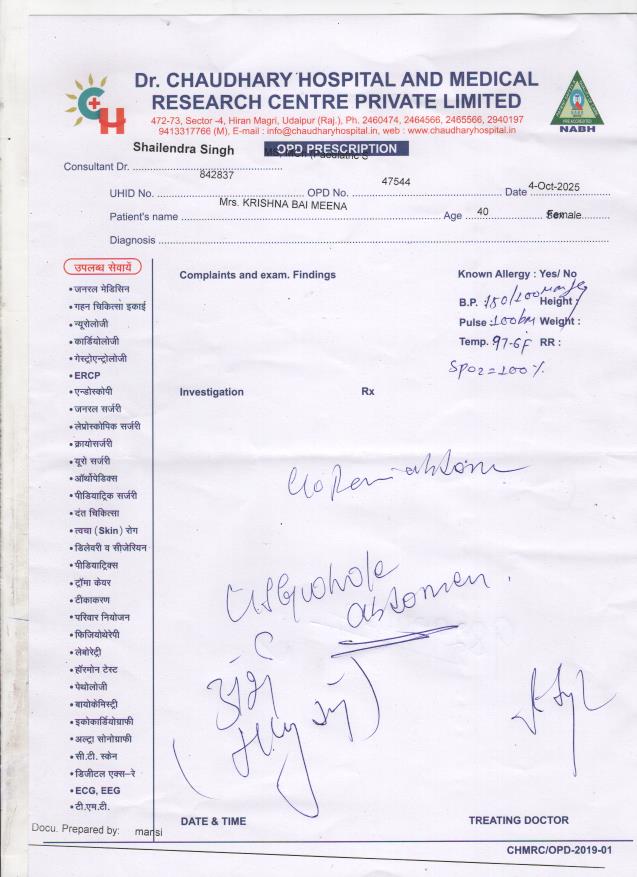 Dr. CHAUDHARY HOSPITAL AND MEDICAL
RESEARCH CENTRE PRIVATE LIMITED
472-73, Sector -4, Hiran Magri, Udaipur (Raj.), Ph. 2460474, 2464566, 2465566, 2940197
9413317766 (M), E-mail : info@chaudharyhospital.in, web : www.chaudharyhospital.in
CH
NABH
Shailendra Singh
OPD PRESCRIPTION
Consultant Dr.
UHID No. 842837 OPD No. 47544 Date 4-Oct-2025
Patient's name Mrs. KRISHNA BAI MEENA Age 40 Sex Female
Diagnosis
उपलब्ध सेवायें
• जनरल मेडिसिन
• गहन चिकित्सा इकाई
• न्यूरोलोजी
• कार्डियोलोजी
• गेस्ट्रोएन्ट्रोलोजी
• ERCP
• एन्डोस्कोपी
• जनरल सर्जरी
• लेप्रोस्कोपिक सर्जरी
• क्रायोसर्जरी
• यूरो सर्जरी
• ऑर्थोपेडिक्स
• पीडियाट्रिक सर्जरी
• दंत चिकित्सा
• त्वचा (Skin) रोग
• डिलेवरी व सीजेरियन
• पीडियाट्रिक्स
• ट्रॉमा केयर
• टीकाकरण
• परिवार नियोजन
• फिजियोथेरेपी
• लेबोरेट्री
• हॉरमोन टेस्ट
• पेथोलोजी
• बायोकेमिस्ट्री
• इकोकार्डियोग्राफी
• अल्ट्रा सोनोग्राफी
• सी.टी. स्केन
• डिजीटल एक्स–रे
• ECG, EEG
• टी.एम.टी.
Complaints and exam. Findings
Known Allergy : Yes/ No
B.P. 150/100 mmHg Height :
Pulse : 100 bm Weight :
Temp. 97.6F RR :
SPO2 = 100 %
Investigation Rx
abdomen.
DATE & TIME
TREATING DOCTOR
Docu. Prepared by: mansi
CHMRC/OPD-2019-01